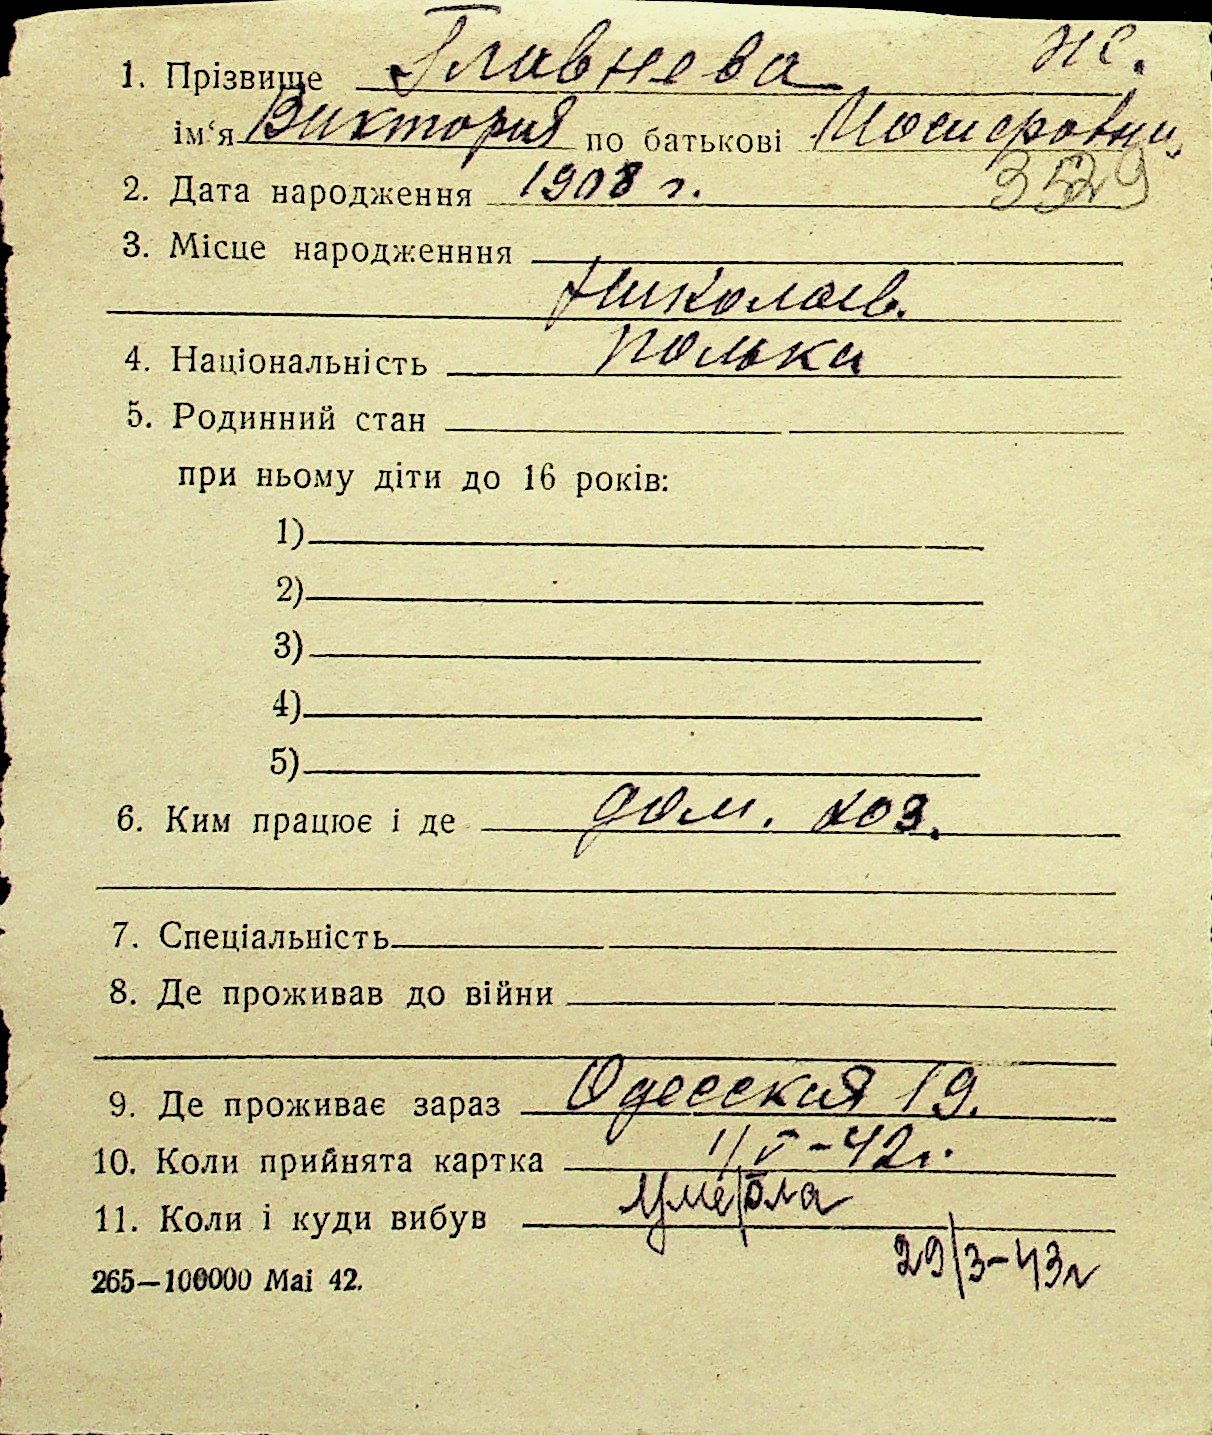 1. Прізвище Главнева Ж.
ім‘я Виктория по батькові Иосифовна
3529
2. Дата народження 1908 г.
3. Місце народженння
Николаев.
4. Національність полька
5. Родинний стан
при ньому діти до 16 років:
1)
2)
3)
4)
5)
6. Ким працює і де дом. хоз.
7. Спеціальність
8. Де проживав до війни
9. Де проживає зараз Одесская 19.
10. Коли прийнята картка 11/V-42г.
11. Коли і куди вибув умерла
29/3-43г
265—100000 Mai 42.